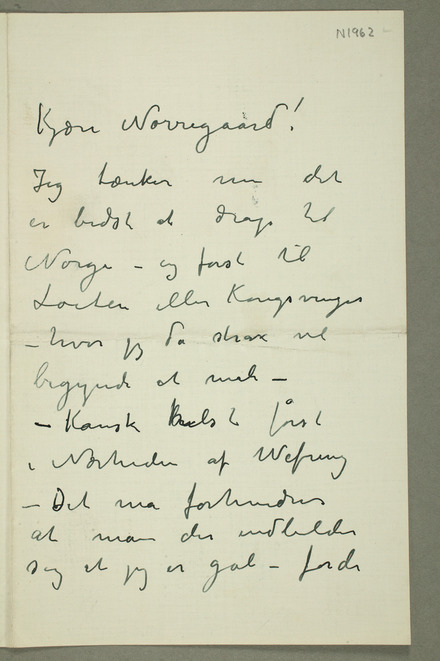 N1962
Kjære Nørregaard!
Jeg tænker nu det
er bedst at drage til
Norge – og først til
Løiten eller Kongsvinger
– hvor jeg da strax vil
begynde at male –
– Kanske helst først
i Nærheden af
– Det må forhindres
at man der indbilder
sig at jeg er gal – fordi